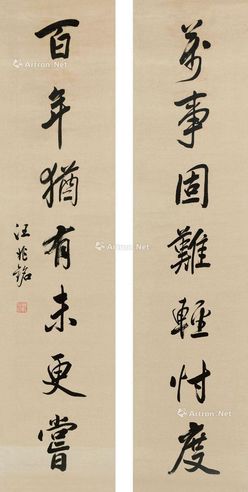 萬事固難輕忖度
百年猶有未更嘗
汪兆銘
Artron.Net
Artron.Net
Artron.Net
Artron.Net